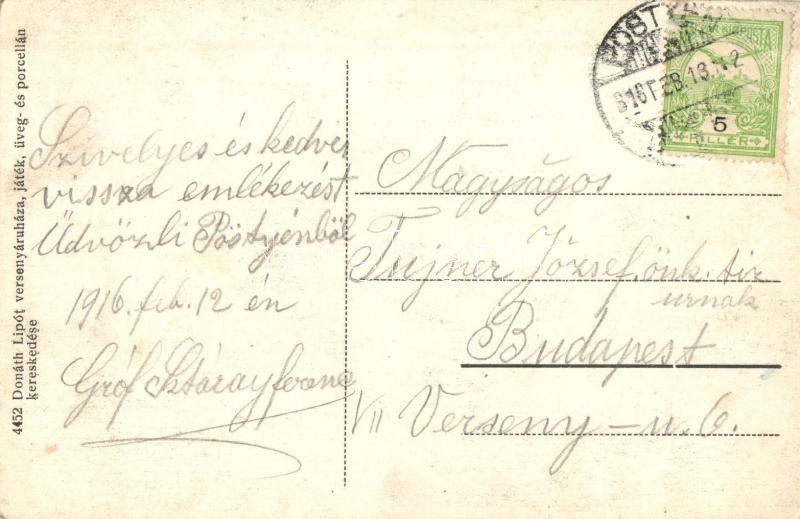 4452 Donáth Lipót versenyáruháza, játék, üveg- és porcellán
kereskedése
Szivelyes és kedves
vissza emlékezést
Üdvözli Pöstyénből
1916. feb. 12 én
Gróf Sztáray ferenc
PÖSTYÉN
916 FEB. 13.
5
FILLÉR
Magyságos
Tujner József, önk. tiz
urnak
Budapest
VII Verseny-u. 6.